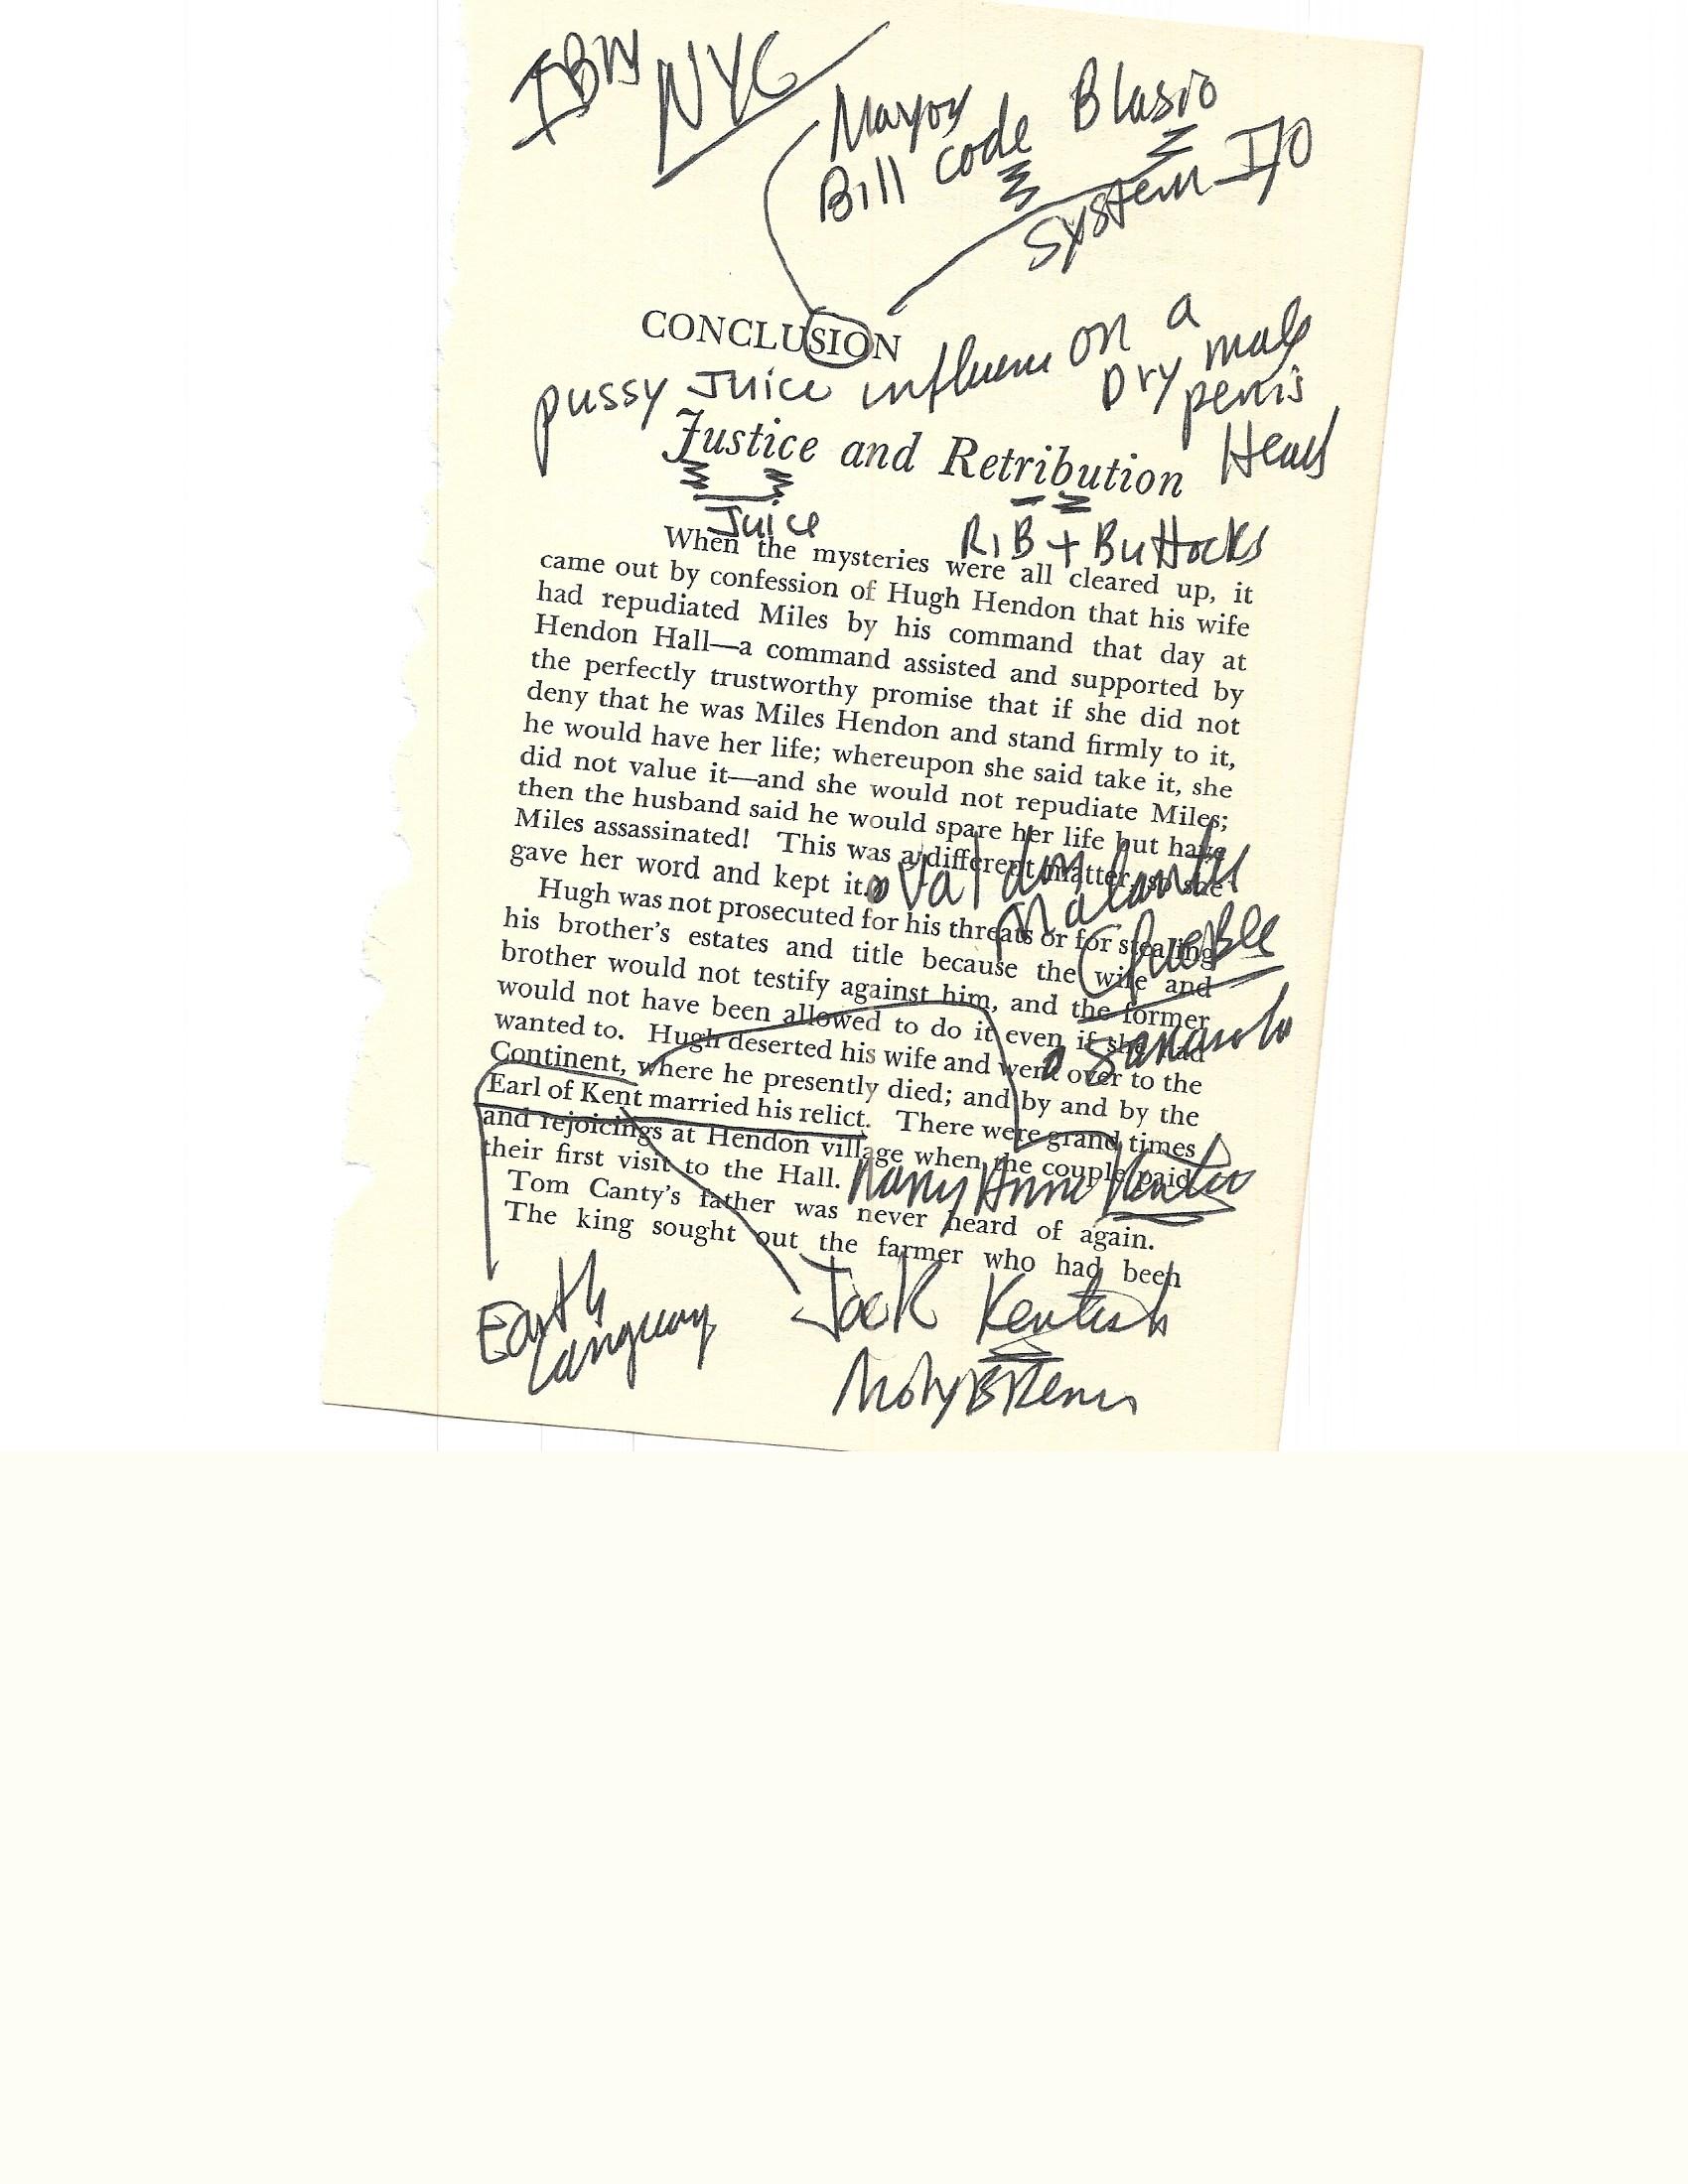 IBM
NYC
Mayor
Bill code Blasio
System I/O
CONCLUSION
pussy Juice influence on a
Dry male
penis
Head
Justice and Retribution
Juice
RiB + Buttocks
When the mysteries were all cleared up, it
came out by confession of Hugh Hendon that his wife
had repudiated Miles by his command that day at
Hendon Hall—a command assisted and supported by
the perfectly trustworthy promise that if she did not
deny that he was Miles Hendon and stand firmly to it,
he would have her life; whereupon she said take it, she
did not value it—and she would not repudiate Miles;
then the husband said he would spare her life but have
Miles assassinated! This was a different matter, so she
gave her word and kept it.
Hugh was not prosecuted for his threats or for stealing
his brother's estates and title because the wife and
brother would not testify against him, and the former
would not have been allowed to do it even if she had
wanted to. Hugh deserted his wife and went over to the
Continent, where he presently died; and by and by the
Earl of Kent married his relict. There were grand times
and rejoicings at Hendon village when the couple paid
their first visit to the Hall.
Tom Canty's father was never heard of again.
The king sought out the farmer who had been
Earth
Jack Kentish